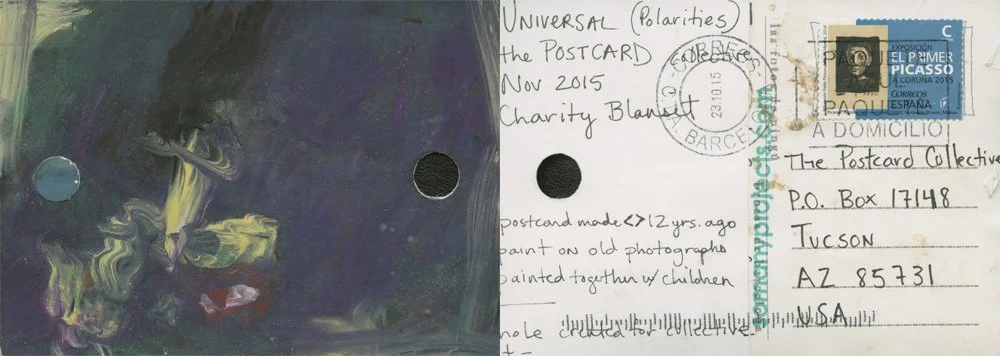 UNIVERSAL (Polarities)
the POSTCARD Collective
Nov 2015
Charity Blansit
postcard made <> 12 yrs. ago
paint on old photographs
painted together w/ children
hole created for collective
CORREOS
23.10.15
BARCELO
somanyprojects.com
C
EXPOSICIÓN
EL PRIMER
PICASSO
A CORUÑA 2015
CORREOS
ESPAÑA
PAQ
PAQUE
A DOMICILIO
The Postcard Collective
P.O. Box 17148
TUCSON
AZ 85731
USA